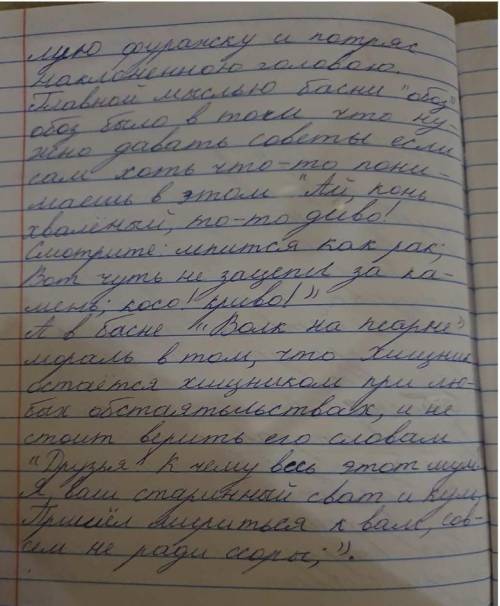 лую фуражку и потряс
наклоненною головою.
Главной мыслью басни "обоз"
обоз было в том что ну-
жно давать советы если
сам хоть что-то пони-
маешь в этом "Ай, конь
хваленый, то-то диво!
Смотрите: лепится как рак;
Вот чуть не зацепил за ка-
мень; косо! криво!"
А в басне "Волк на псарне"
мораль в том, что хищник
остаётся хищником при лю-
бых обстаятьльствах, и не
стоит верить его словам
"Друзья! К чему весь этот шум
Я, ваш старинный сват и кум,
Пришёл мириться к вам, сов-
сем не ради ссоры;".